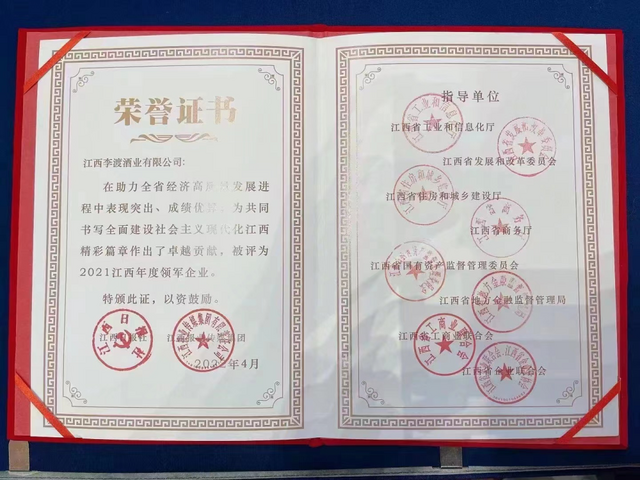 荣誉证书
江西李渡酒业有限公司:
在助力全省经济高质量发展进
程中表现突出、成绩优异,为共同
书写全面建设社会主义现代化江西
精彩篇章作出了卓越贡献,被评为
2021江西年度领军企业。
特颁此证,以资鼓励。
江西日报社
2022年4月
指导单位
江西省工业和信息化厅
江西省发展和改革委员会
江西省住房和城乡建设厅
江西省商务厅
江西省国有资产监督管理委员会
江西省地方金融监督管理局
江西省工商业联合会
江西省企业联合会